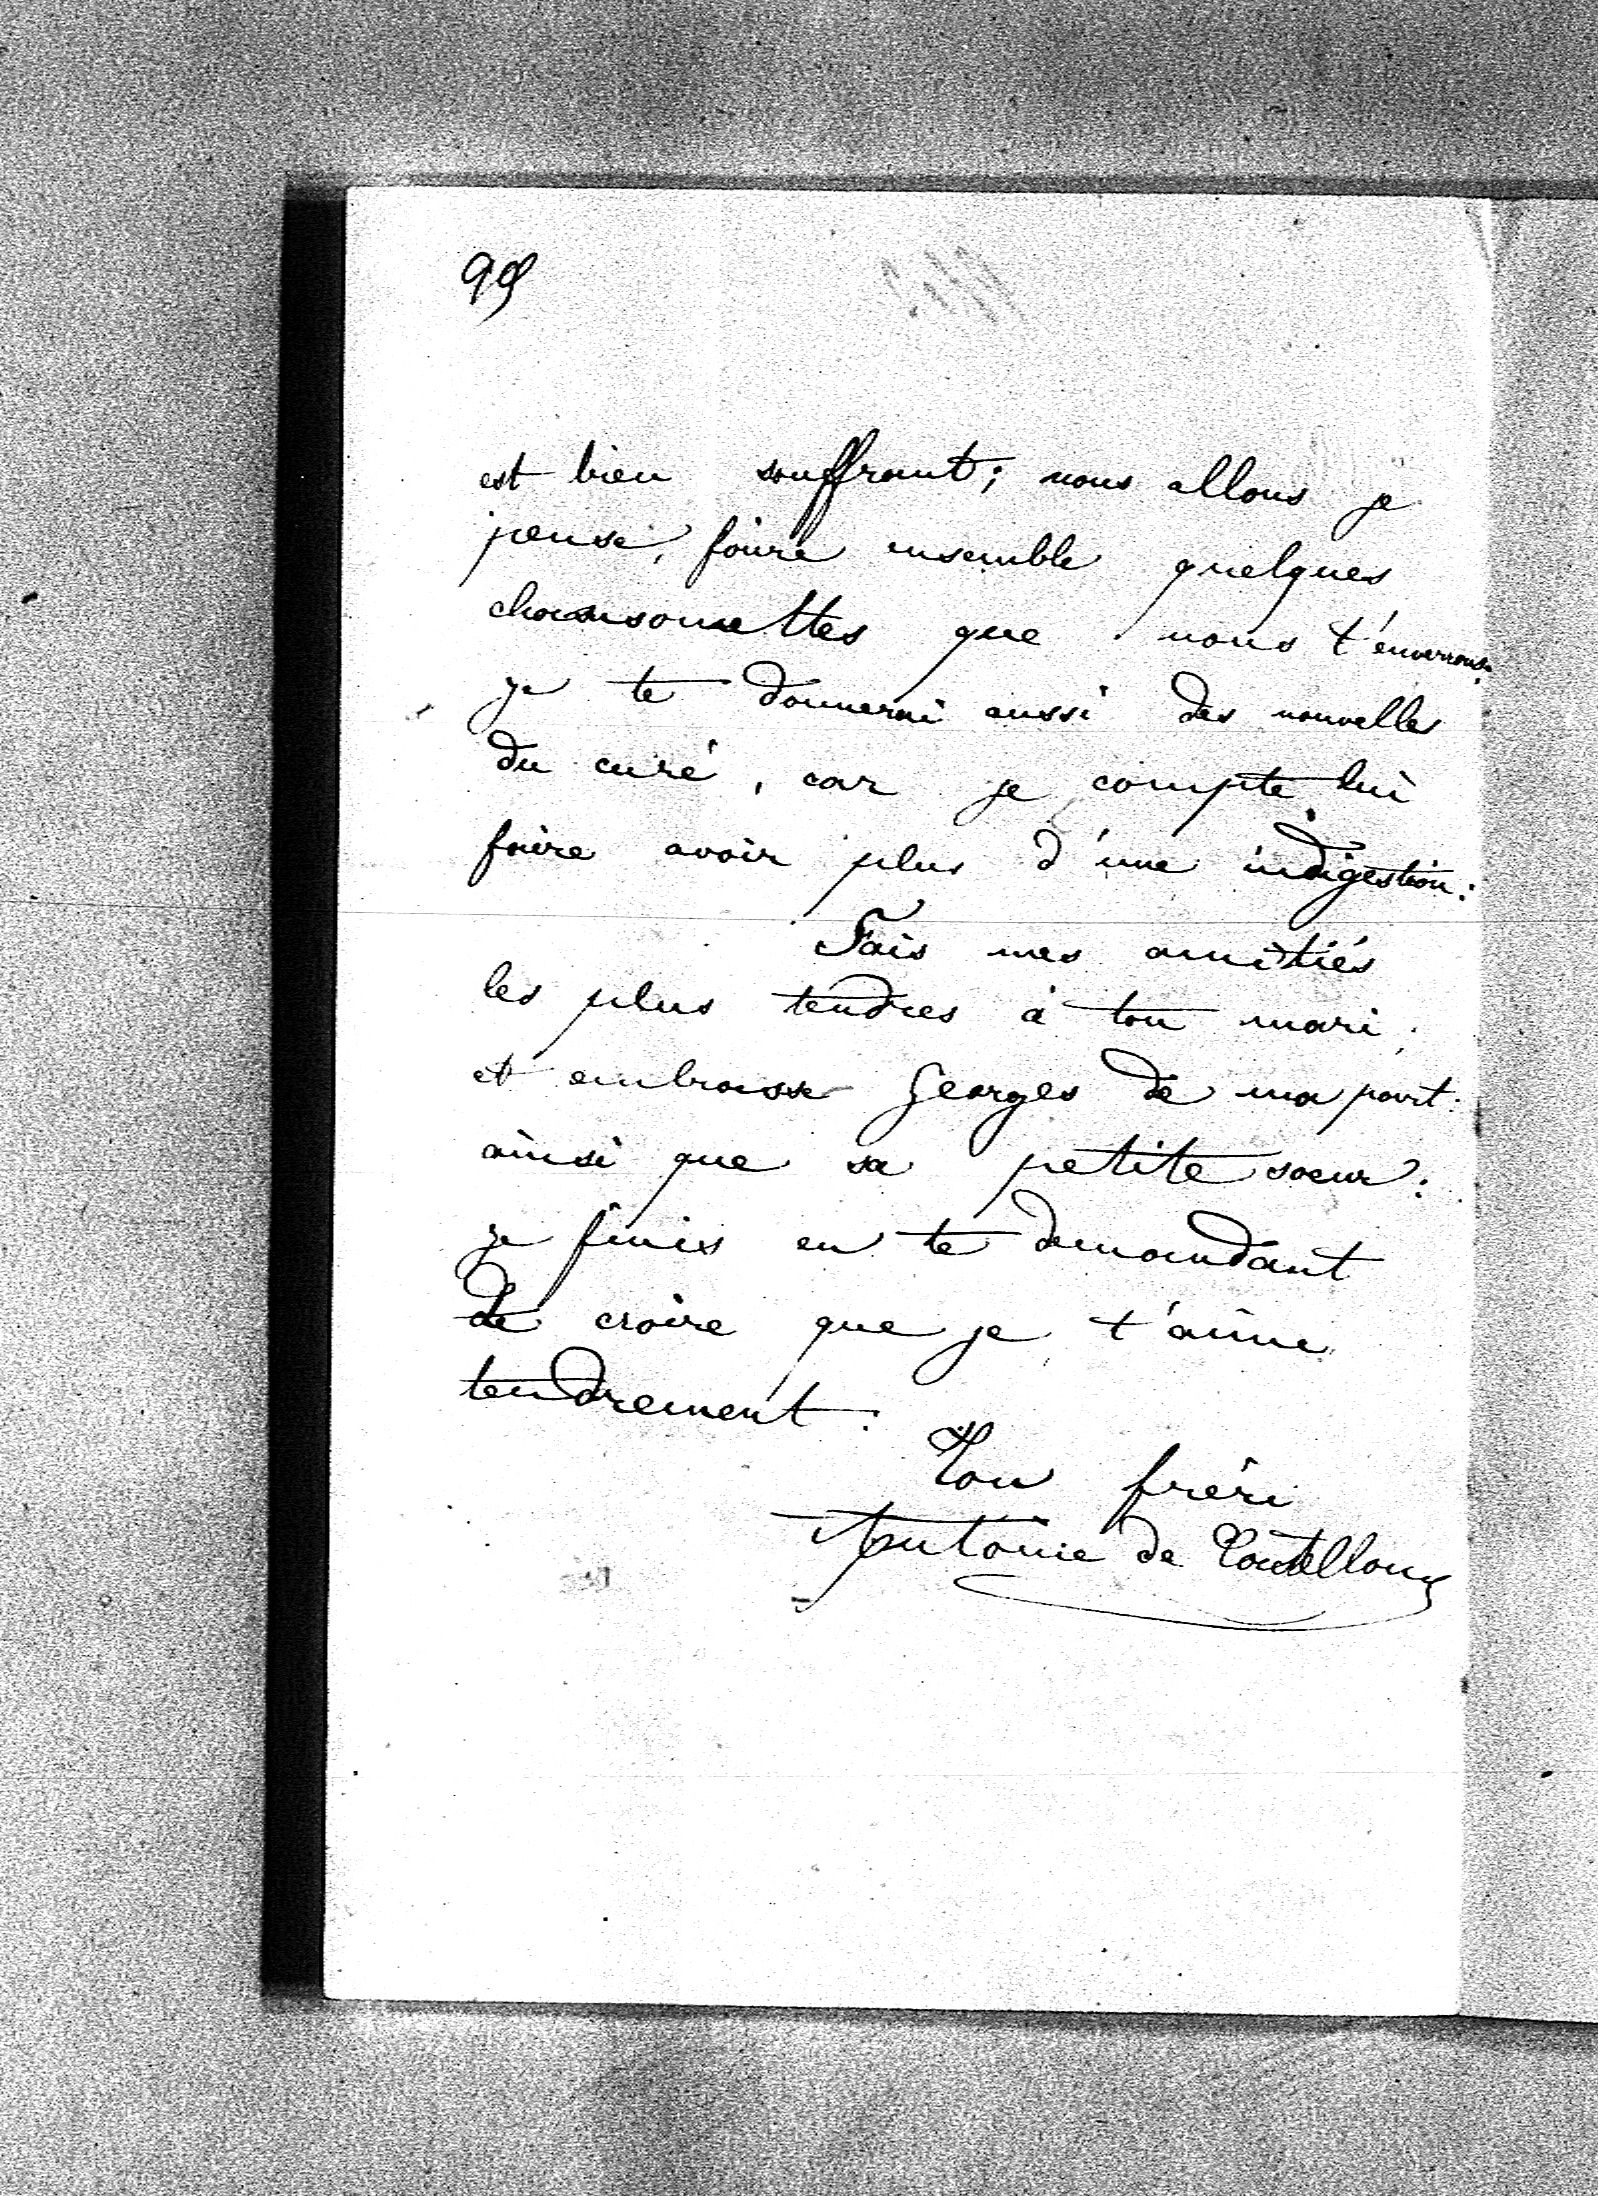 99
est bien souffrant ; nous allons je
pense, faire ensemble quelques
chansonnettes que nous t'enverrons.
je te donnerai aussi des nouvelles
du curé, car je compte lui
faire avoir plus d'une indigestion :
Fais mes amitiés
les plus tendres à ton mari,
et embrasse Georges de ma part :
ainsi que sa petite soeur :
je finis en te demandant
de croire que je t'aime
tendrement :
Ton frère
Antoine de